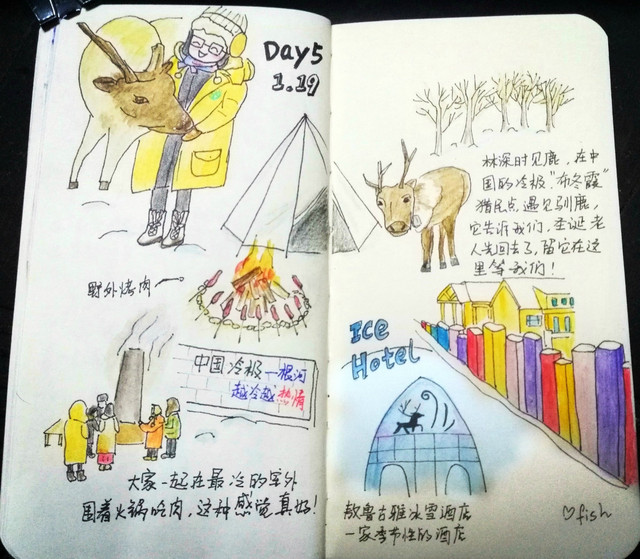 Day5
1.19
野外烤肉
中国冷极—根河
越冷越热情
大家一起在最冷的室外
围着火锅吃肉，这种感觉真好！
林深时见鹿，在中
国的冷极"布冬霞"
猎民点，遇见驯鹿，
它告诉我们，圣诞老
人先回去了，留它在这
里等我们！
Ice
Hotel
敖鲁古雅冰雪酒店
一家季节性的酒店
♡fish